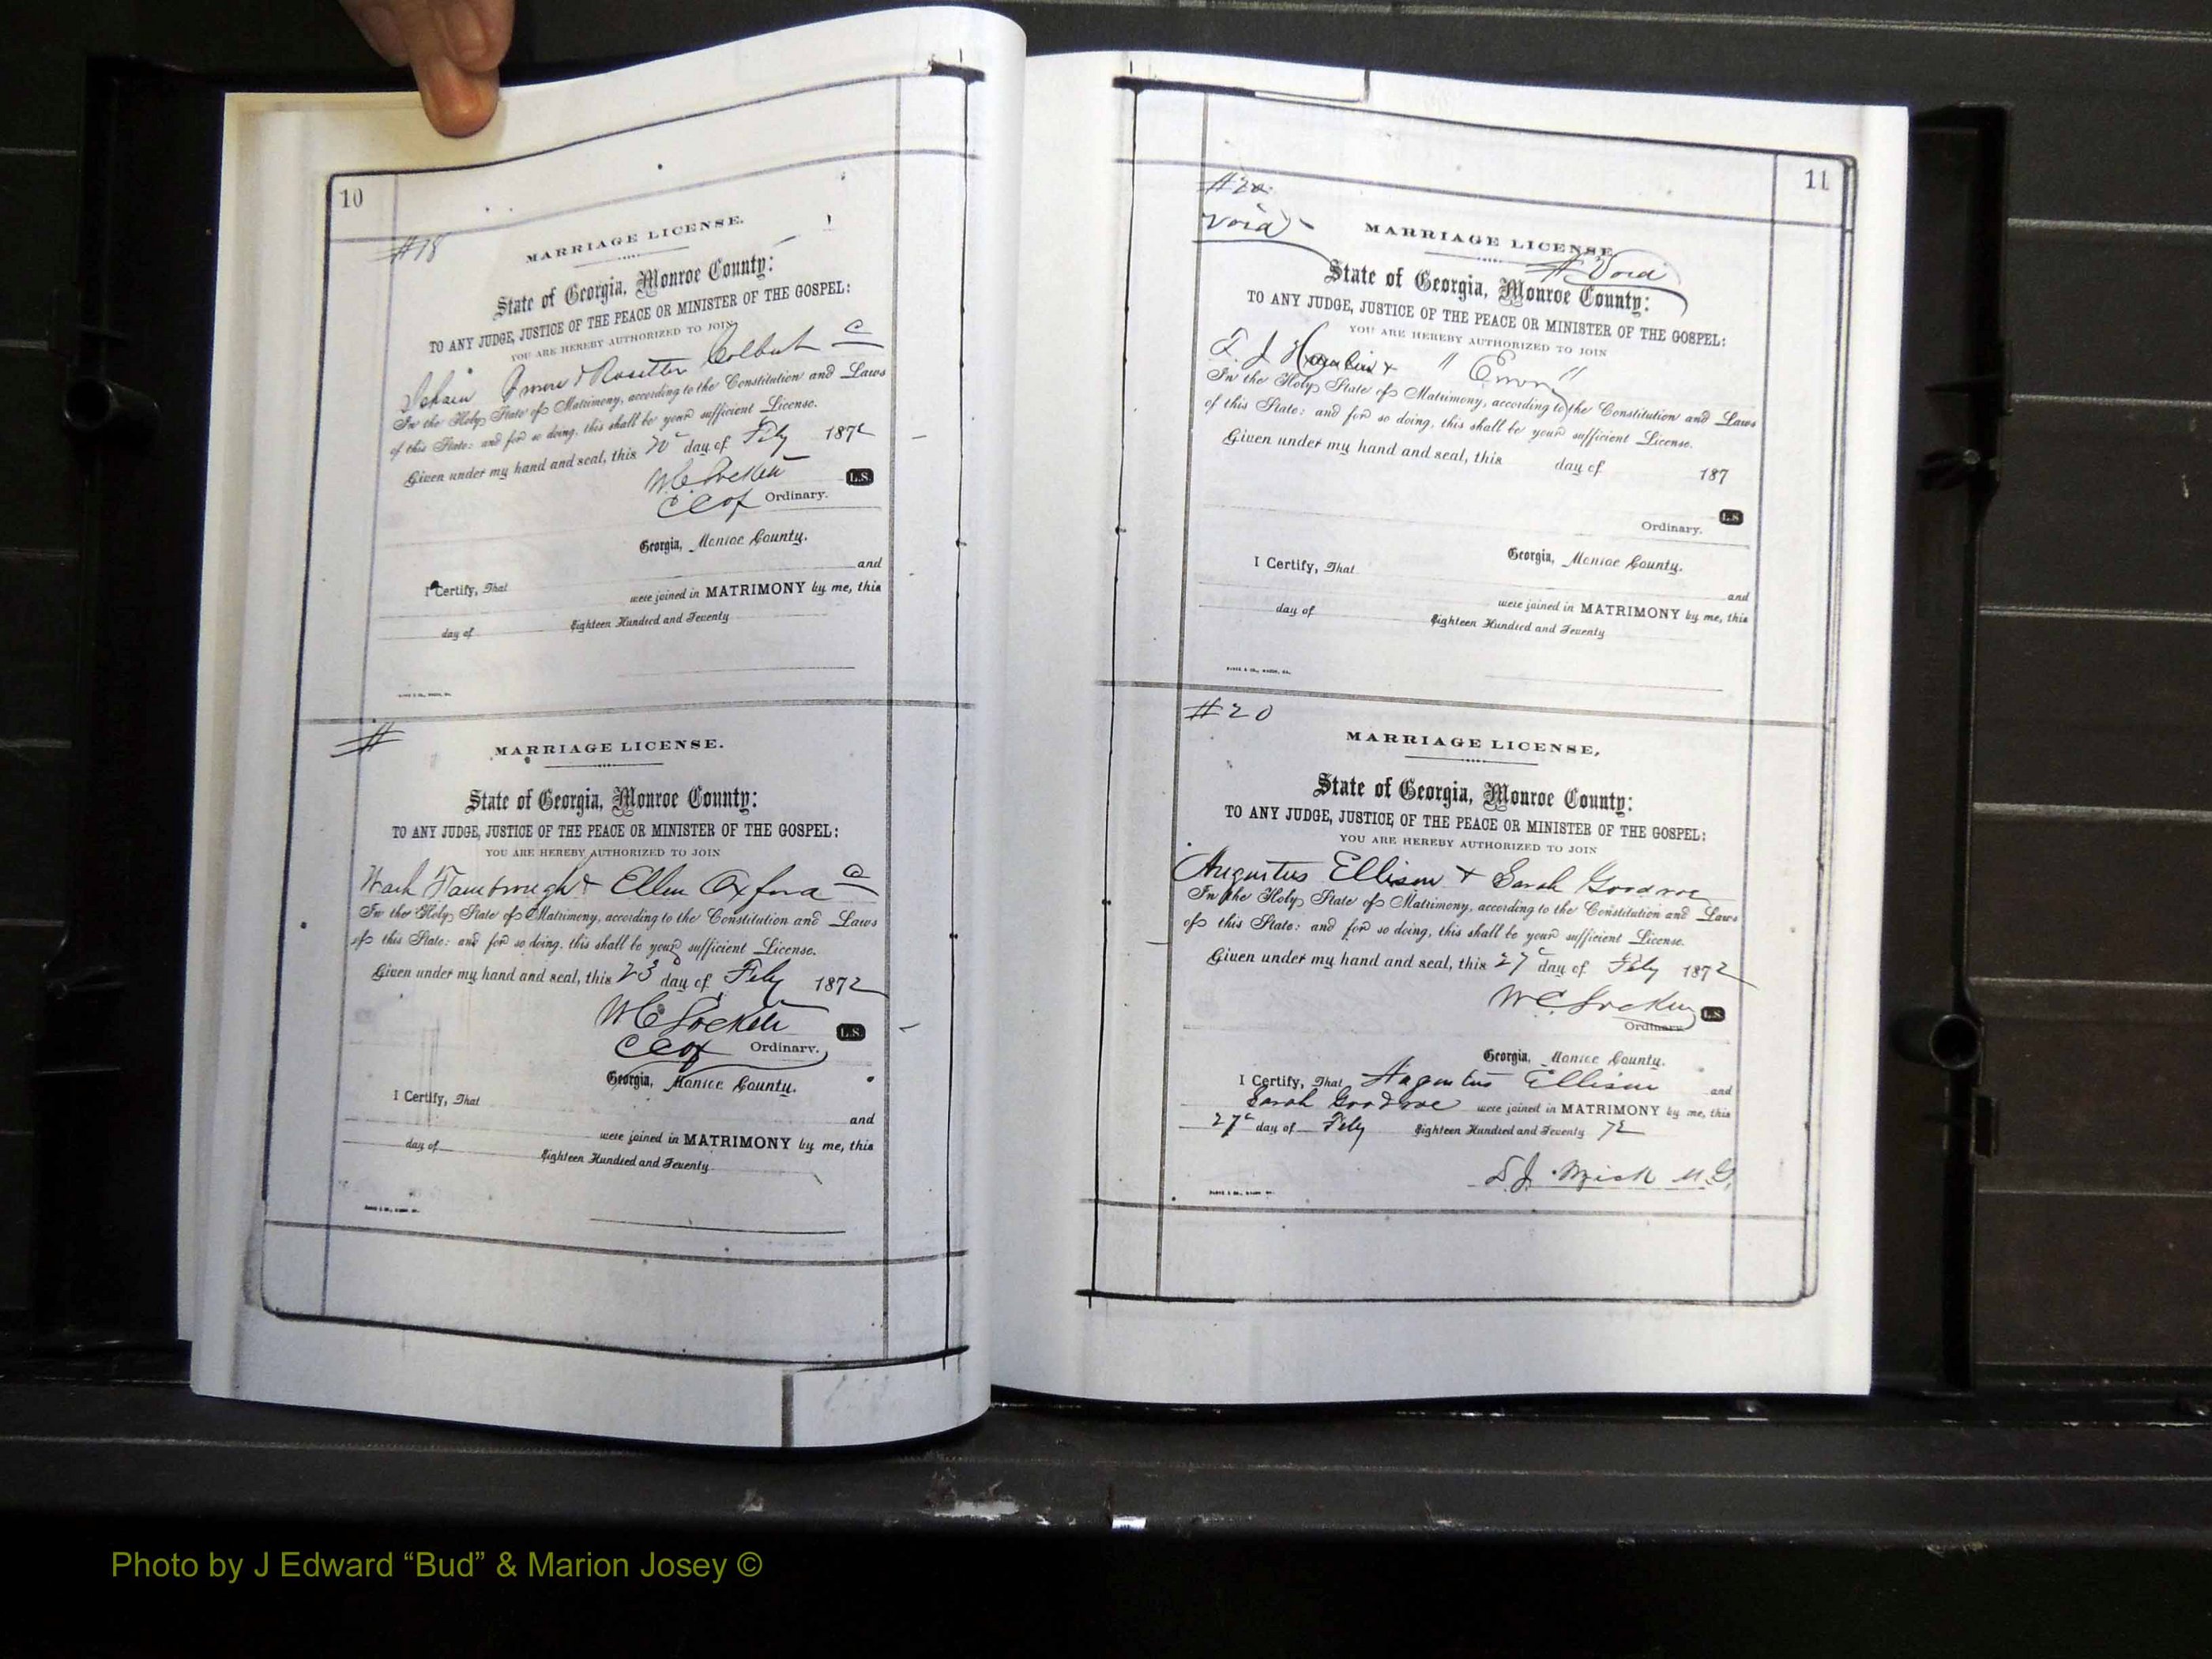 10
#18
MARRIAGE LICENSE.
State of Georgia, Monroe County:
TO ANY JUDGE, JUSTICE OF THE PEACE OR MINISTER OF THE GOSPEL:
YOU ARE HEREBY AUTHORIZED TO JOIN
Rosetta Colbert C
In the Holy State of Matrimony, according to the Constitution and Laws
of this State: and for so doing, this shall be your sufficient License.
Given under my hand and seal, this day of Feby 1872
L.S.
CCOf Ordinary.
Georgia, Monroe County.
and
I Certify, That
were joined in MATRIMONY by me, this
day of Eighteen Hundred and Seventy
#
MARRIAGE LICENSE.
State of Georgia, Monroe County:
TO ANY JUDGE, JUSTICE OF THE PEACE OR MINISTER OF THE GOSPEL:
YOU ARE HEREBY AUTHORIZED TO JOIN
Wash & Ellen Oxford C
In the Holy State of Matrimony, according to the Constitution and Laws
of this State: and for so doing, this shall be your sufficient License.
Given under my hand and seal, this 23 day of Feby 1872
L.S.
CCOf Ordinary.
Georgia, Monroe County.
I Certify, That
and
were joined in MATRIMONY by me, this
day of Eighteen Hundred and Seventy
11
#20
Void
MARRIAGE LICENSE,
Void
State of Georgia, Monroe County:
TO ANY JUDGE, JUSTICE OF THE PEACE OR MINISTER OF THE GOSPEL:
YOU ARE HEREBY AUTHORIZED TO JOIN
"Error"
In the Holy State of Matrimony, according to the Constitution and Laws
of this State: and for so doing, this shall be your sufficient License.
Given under my hand and seal, this day of 187
L.S
Ordinary.
Georgia, Monroe County.
I Certify, That
and
were joined in MATRIMONY by me, this
day of Eighteen Hundred and Seventy
#20
MARRIAGE LICENSE,
State of Georgia, Monroe County:
TO ANY JUDGE, JUSTICE OF THE PEACE OR MINISTER OF THE GOSPEL:
YOU ARE HEREBY AUTHORIZED TO JOIN
Augustus Ellison + Sarah Goodroe
In the Holy State of Matrimony, according to the Constitution and Laws
of this State: and for so doing, this shall be your sufficient License.
Given under my hand and seal, this 27 day of Feby 1872
L.S
Ordinary.
Georgia, Monroe County.
I Certify, That Augustus Ellison and
Sarah Goodroe were joined in MATRIMONY by me, this
27 day of Feby Eighteen Hundred and Seventy 72
M.G.
Photo by J Edward “Bud” & Marion Josey ©